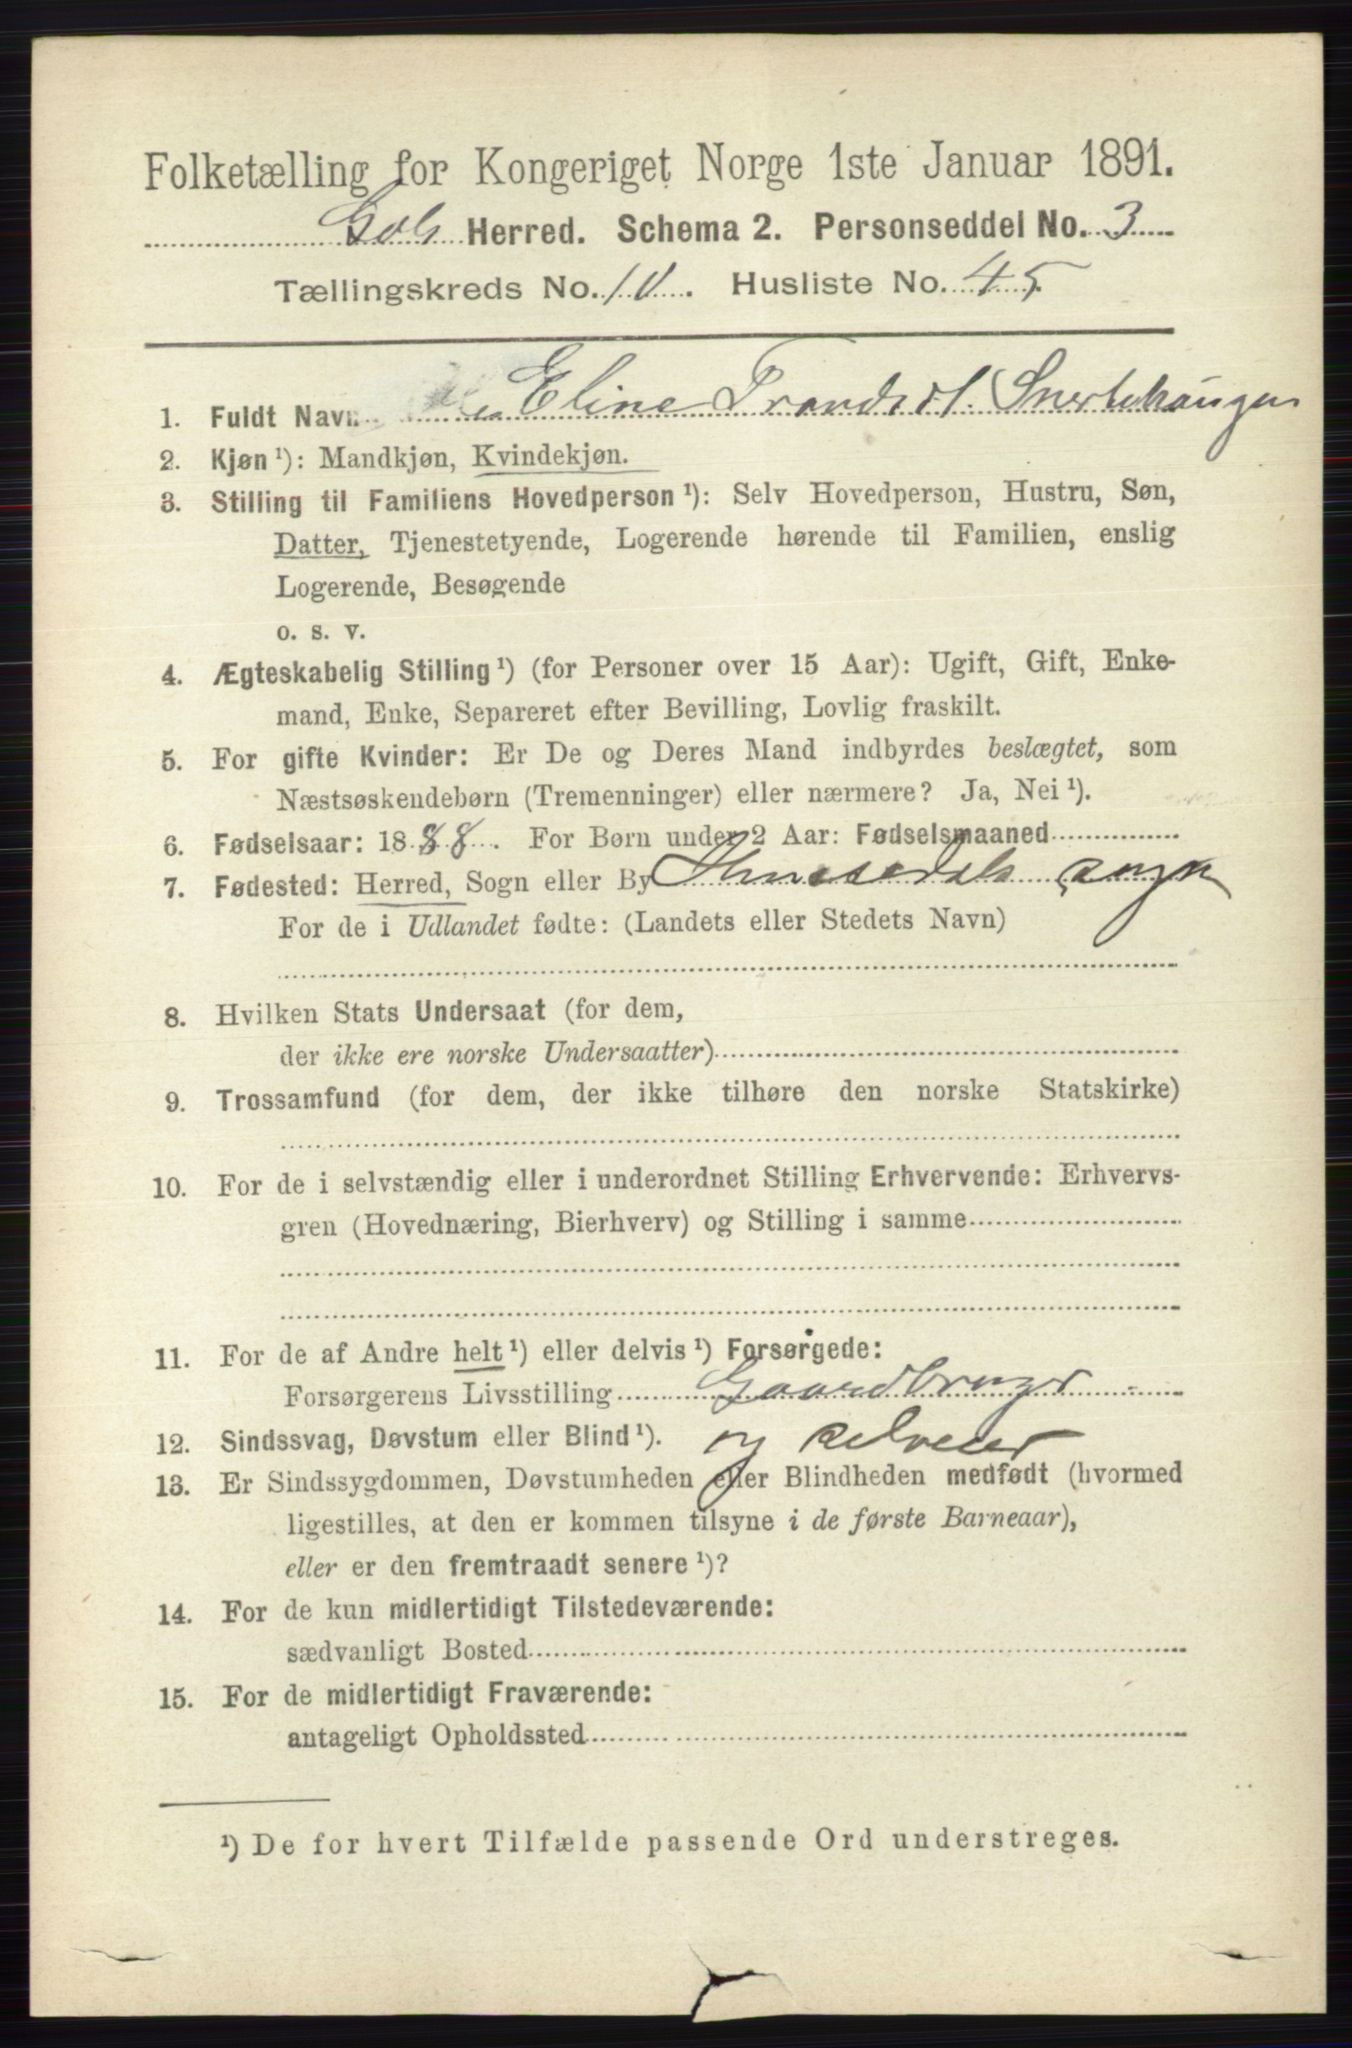 Folketælling for Kongeriget Norge 1ste Januar 1891.
Gols Herred. Schema 2. Personseddel No. 3
Tællingskreds No. 10. Husliste No. 45
1. Fuldt Navn Eline Trondsd. Snertehaugen
2. Kjøn ¹): Mandkjøn, Kvindekjøn.
3. Stilling til Familiens Hovedperson ¹): Selv Hovedperson, Hustru, Søn,
Datter, Tjenestetyende, Logerende hørende til Familien, enslig
Logerende, Besøgende
o. s. v.
4. Ægteskabelig Stilling ¹) (for Personer over 15 Aar): Ugift, Gift, Enke-
mand, Enke, Separeret efter Bevilling, Lovlig fraskilt.
5. For gifte Kvinder: Er De og Deres Mand indbyrdes beslægtet, som
Næstsøskendebørn (Tremenninger) eller nærmere? Ja, Nei ¹).
6. Fødselsaar: 1888. For Børn under 2 Aar: Fødselsmaaned
7. Fødested: Herred, Sogn eller By Hemsedals sogn
For de i Udlandet fødte: (Landets eller Stedets Navn)
8. Hvilken Stats Undersaat (for dem,
der ikke ere norske Undersaatter)
9. Trossamfund (for dem, der ikke tilhøre den norske Statskirke)
10. For de i selvstændig eller i underordnet Stilling Erhvervende: Erhvervs-
gren (Hovednæring, Bierhverv) og Stilling i samme
11. For de af Andre helt ¹) eller delvis ¹) Forsørgede:
Forsørgerens Livsstilling Gaardbruger
12. Sindssvag, Døvstum eller Blind ¹). og selveier
13. Er Sindssygdommen, Døvstumheden eller Blindheden medfødt (hvormed
ligestilles, at den er kommen tilsyne i de første Barneaar),
eller er den fremtraadt senere ¹)?
14. For de kun midlertidigt Tilstedeværende:
sædvanligt Bosted
15. For de midlertidigt Fraværende:
antageligt Opholdssted
¹) De for hvert Tilfælde passende Ord understreges.